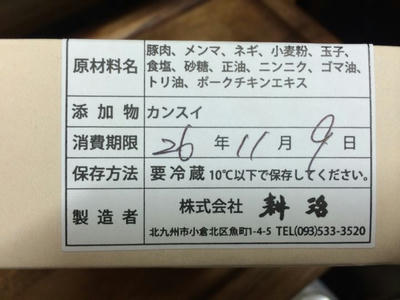 原材料名 豚肉、メンマ、ネギ、小麦粉、玉子、
食塩、砂糖、正油、ニンニク、ゴマ油、
トリ油、ポークチキンエキス
添加物 カンスイ
消費期限 26年11月9日
保存方法 要冷蔵 10℃以下で保存してください。
製造者 株式会社 耕治
北九州市小倉北区魚町1-4-5 TEL(093)533-3520